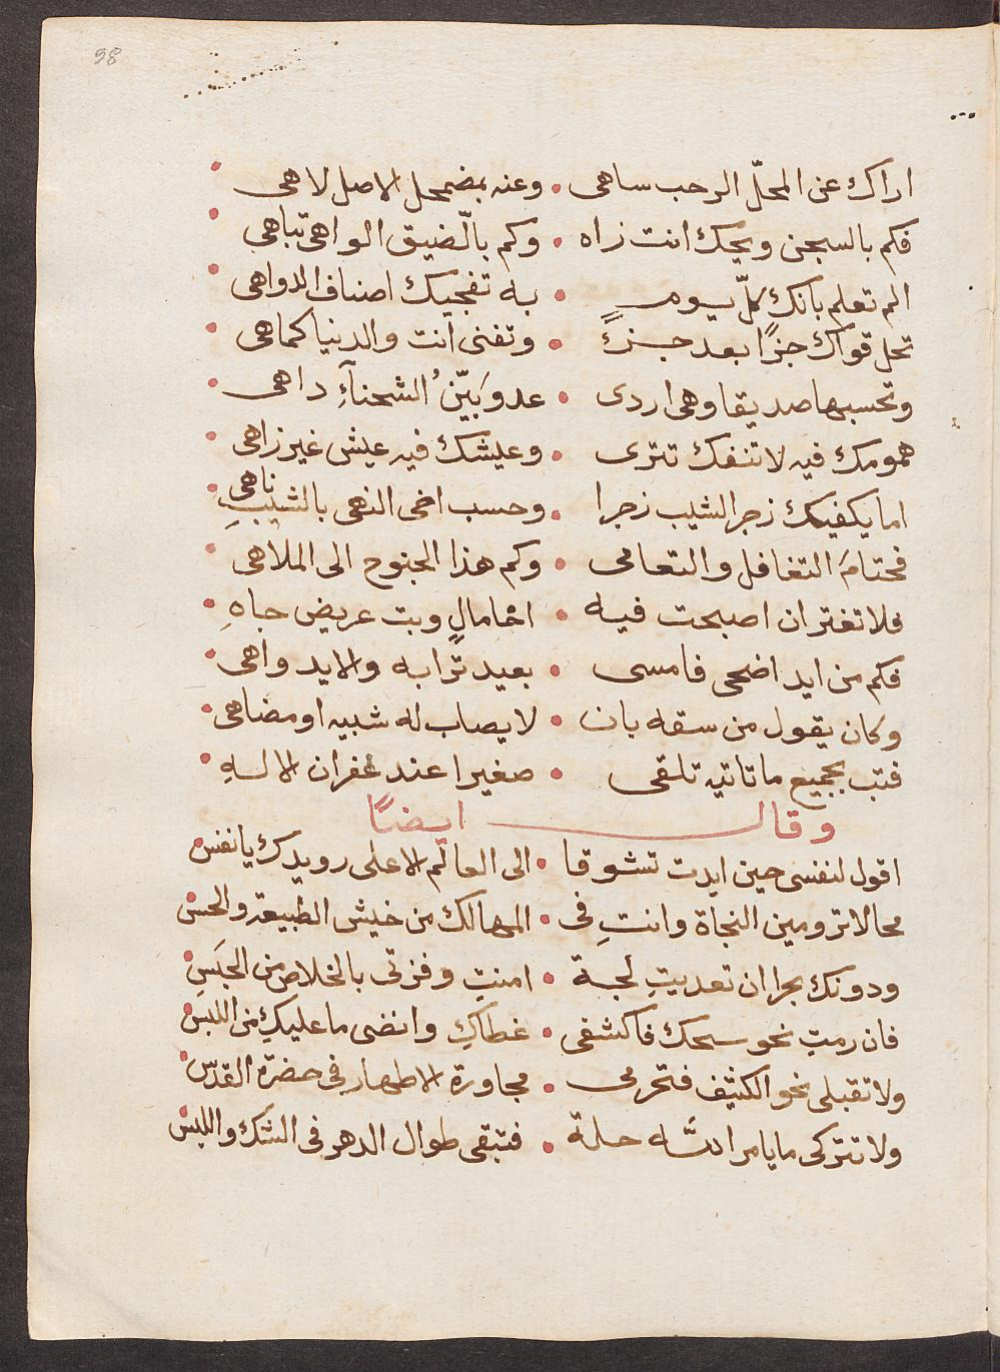 98
اراك عن المحلّ الرحب ساهى • وعنه بمضمحل الاصل لاهى •
فكم بالسجن ويحك انت زاه • وكم بالضيق الواهى تباهى •
الم تعلم بانك كلّ يومٍ • به تفجيك اصناف الدواهى •
تحل قواك جزًا بعد جزءٍ • وتفنى انت والدنيا كماهى •
وتحسبها صديقا وهى اردى • عدو بَيّنُ الشحنآءِ داهى •
همومك فيه لا تنفك تترى • وعيشك فيه عيش غير زاهى •
اما يكفيك زجر الشيب زجرا • وحسب اخى النهى بالشيبِ ناهى •
فحتامَ التغافل والتعامى • وكم هذا الجنوح الى الملاهى •
فلا تغتر ان اصبحت فيه • اخا مالٍ وبت عريض جاهِ •
فكم من ايد اضحى فامسى • بعيد تُرابه والايد واهى •
وكان يقول من سقه بان • لا يصاب له شبيه او مضاهى •
فتب بجميع ما تاتيه تلقى • صغيرا عند غفران الالهِ •
وقال ايضًا
اقول لنفسى حين ابدت تشوقا • الى العالم الاعلى رويدك يا نفس •
محالا ترومين النجاة وانتِ فى • المهالك من خيش الطبيعةِ والحس •
ودونك بحرا ان تعديتِ لجة • امنتِ وفزتى بالخلاص من الحبَسِ •
فان رمتِ نحو سحك فاكشفى • غطاكِ وانضى ما عليكِ من اللبس •
ولا تقبلى نحو الكثيف فتحرمى • مجاورة الاطهار فى حضرة القدس •
ولا تتركى ما يامر اللّه حلة • فتبقى طوال الدهر فى الشك واللبس •